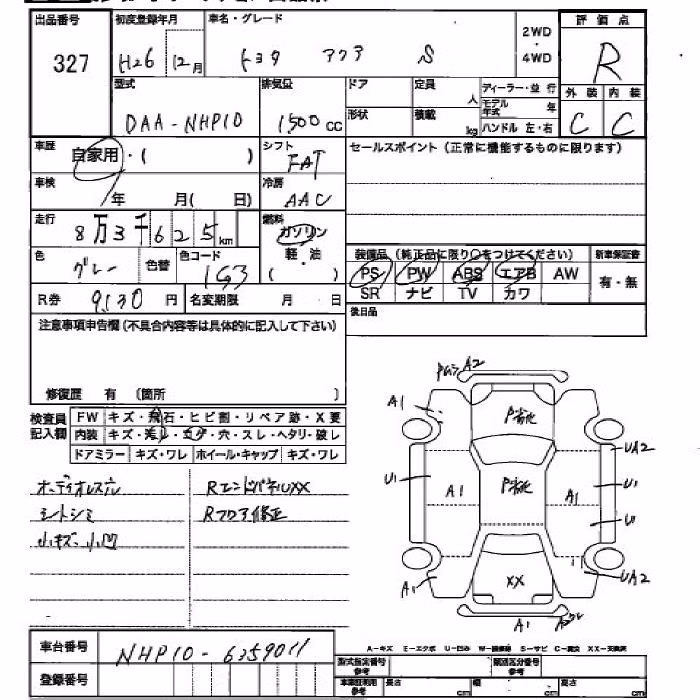 出品番号 初度登録年月 車名・グレード 評価点
327 H26 12月 トヨタ アクア S 2WD・4WD R
型式 排気量 ドア 定員 人 ディーラー・並行 外装 内装
DAA-NHP10 1500cc 形状 積載 kg モデル年式 年 C C
ハンドル 左・右
車歴 自家用・( ) シフト FAT セールスポイント(正常に機能するものに限ります)
車検 年 月( 日) 冷房 AAC
走行 8万3千625km 燃料 ガソリン・軽油
色 グレー 色替 色コード 1G3 ( )
装備品(純正品に限り○をつけてください) 新車保証書
PS PW ABS エアB AW 有・無
SR ナビ TV カワ
R券 9,130円 名変期限 月 日
後日品
注意事項申告欄(不具合内容等は具体的に記入して下さい)
修復歴 有 (箇所 )
検査員記入欄 FW キズ・飛石・ヒビ割・リペア跡・X要
内装 キズ・ヨゴレ・コゲ・穴・スレ・ヘタリ・破レ
ドアミラー キズ・ワレ ホイール・キャップ キズ・ワレ
オーディオレス穴 RエンドパネルXX
シートシミ Rフロア修正
小キズ、小凹
A2
A1 P劣化 UA2
U1 A1 P劣化 A1 U1
U1
A1 XX UA2
A1
A-キズ E-エクボ U-凹み W-補修跡 S-サビ C-腐食 XX-交換済
車台番号 NHP10-6359011
登録番号
型式指定番号 参考 類別区分番号 参考
車庫証明用 参考 長さ cm 幅 cm 高さ cm